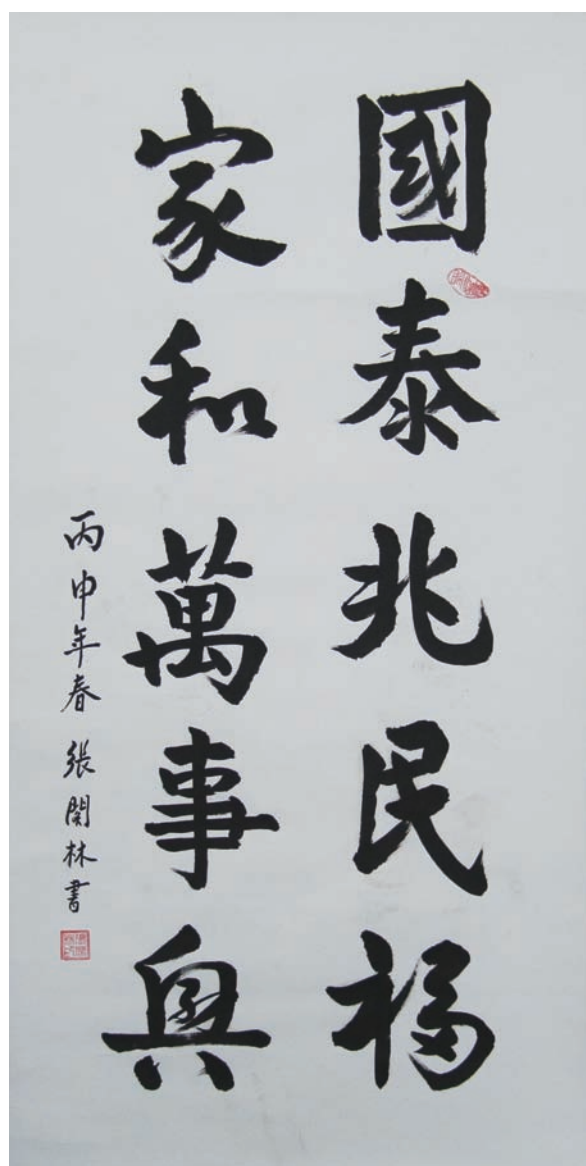 國泰兆民福
家和萬事興
丙申年春 張関林書